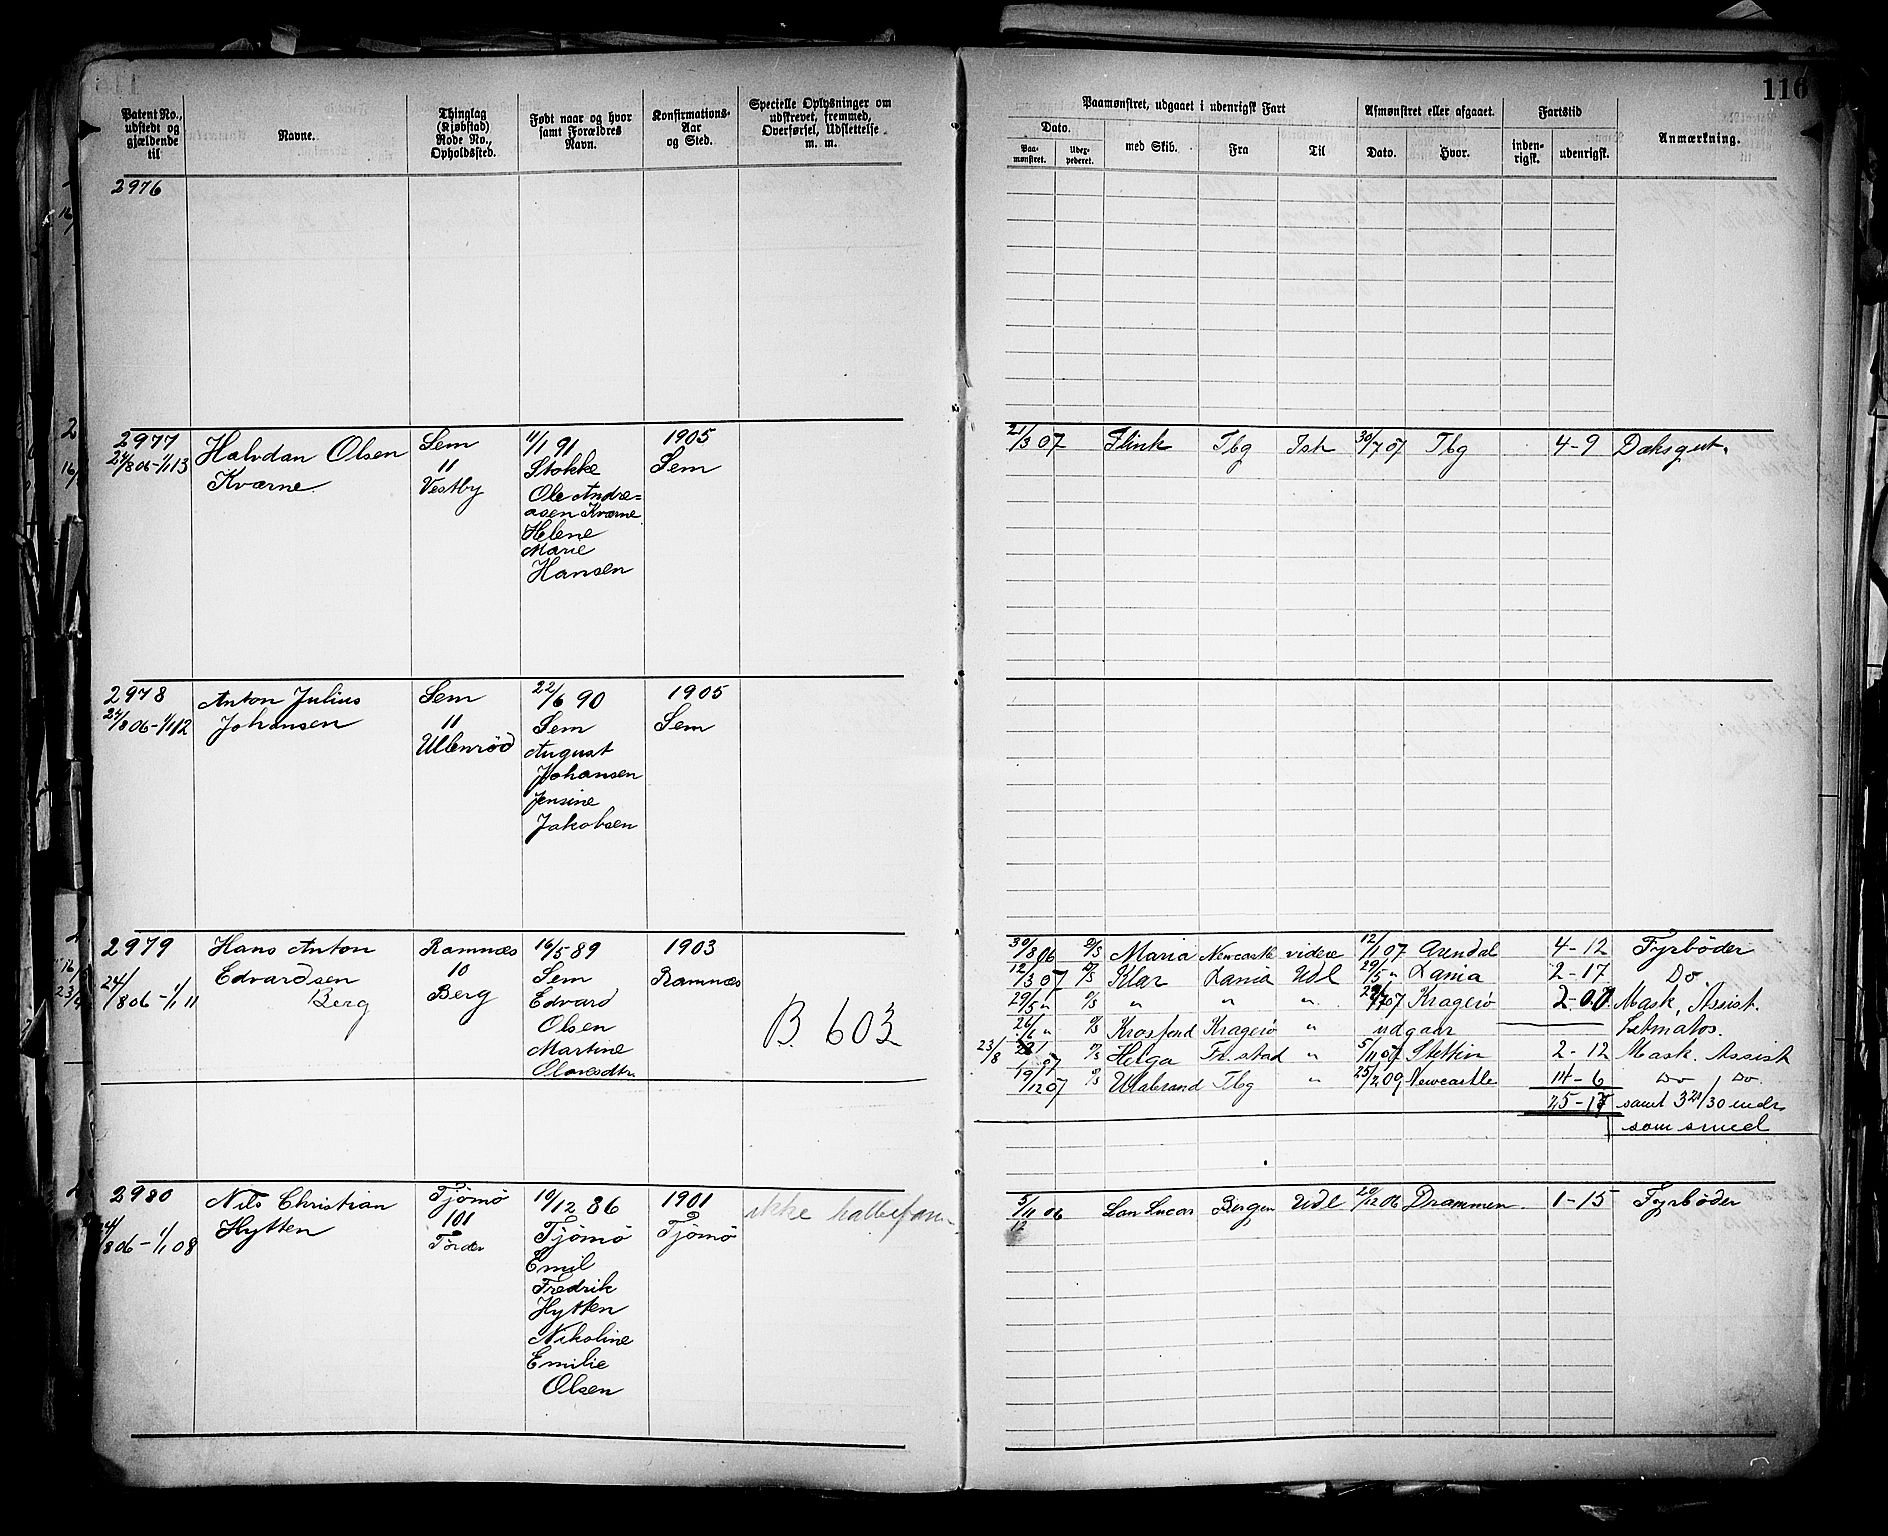 116
Patent No., udstedt og gjældende til
Navne.
Thinglag (Kjøbstad) Rode No., Opholdssted.
Født naar og hvor samt Forældres Navn.
Konfirmations-Aar og Sted.
Specielle Oplysninger om udskrevet, fremmed, Overførsel, Udslettelse m. m.
Paamønstret, udgaaet i udenrigsk Fart
Dato.
Paa-mønstret.
med Skib.
Fra
Til
Afmønstret eller afgaaet.
Dato.
Hvor.
Fartstid
inden-rigsk.
udenrigsk.
Anmærkning.
2976
2977
24/8 06-1/1 13
Halvdan Olsen
Kværne
Sem
11
Vestby
11/1 91
Stokke
Ole Andre=
asen Kværne
Helene
Marie
Hansen
1905
Sem
21/3 07 Flink Tbg Ish 30/7 07 Tbg 4-9 Dæksgut.
2978
24/8 06-1/1 12
Anton Julius
Johansen
Sem
11
Ullenrød
22/6 90
Sem
August
Johansen
Jensine
Jakobsen
1905
Sem
2979
24/8 06-1/1 11
Hans Anton
Edvardsen
Berg
Ramnæs
10
Berg
16/5 89
Sem
Edvard
Olsen
Martine
1903
Ramnæs
B. 603
30/8 06 D/S Maria Newcastle videre 12/1 07 Arendal 4-12 Fyrbøder
12/3 07 D/S Klar Lania Udl 29/5 " Lania 2-17 Do.
29/5 " D/S " " " 07 Kragerø Mask, Assist.
26/6 " D/S Krosfond Kragerø " udgaar
23/8 07 D/S Helga Fr.stad " 5/11 07 Stettin 2-12 Mask. Assist
19/12 07 D/S Ulabrand Tbg " 25/2 09 Newcastle 14-6 Do Do.
samt 3 23/30 mdr
som smed
2980
24/8 06-1/1 08
Nils Christian
Hytten
Tjömö
101
10/12 86
Tjömö
Emil
Fredrik
Hytten
Nikoline
Emilie
Olsen
1901
Tjömö
ikke
5/11 06 San Lucar Bergen Udl 20/12 06 Drammen 1-15 Fyrbøder
12